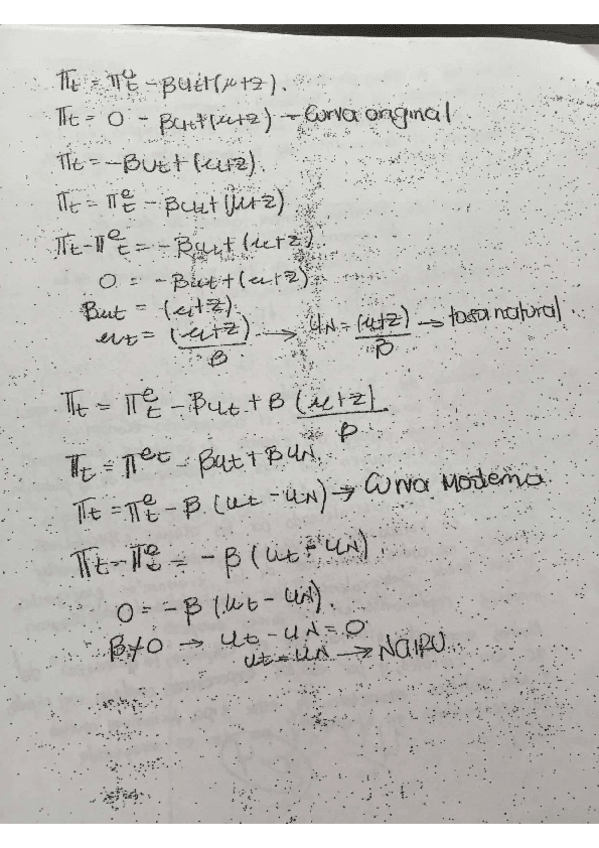 πt = πᵉt - βut + (μ+z).
πt = 0 - βut + (μ+z) → Curva original
πt = -βut + (μ+z).
πt = πᵉt - βut + (μ+z)
πt - πᵉt = -βut + (μ+z).
0 = -βut + (μ+z)
βut = (μ+z).
ut = (μ+z)/β → uN = (μ+z)/β → tasa natural.
πt = πᵉt - βut + β (μ+z)/β
πt = πᵉt - βut + βuN.
πt = πᵉt - β (ut - uN) → Curva Moderna.
πt - πᵉt = -β (ut - uN).
0 = -β (ut - uN).
β≠0 → ut - uN = 0
ut = uN → NAIRU.